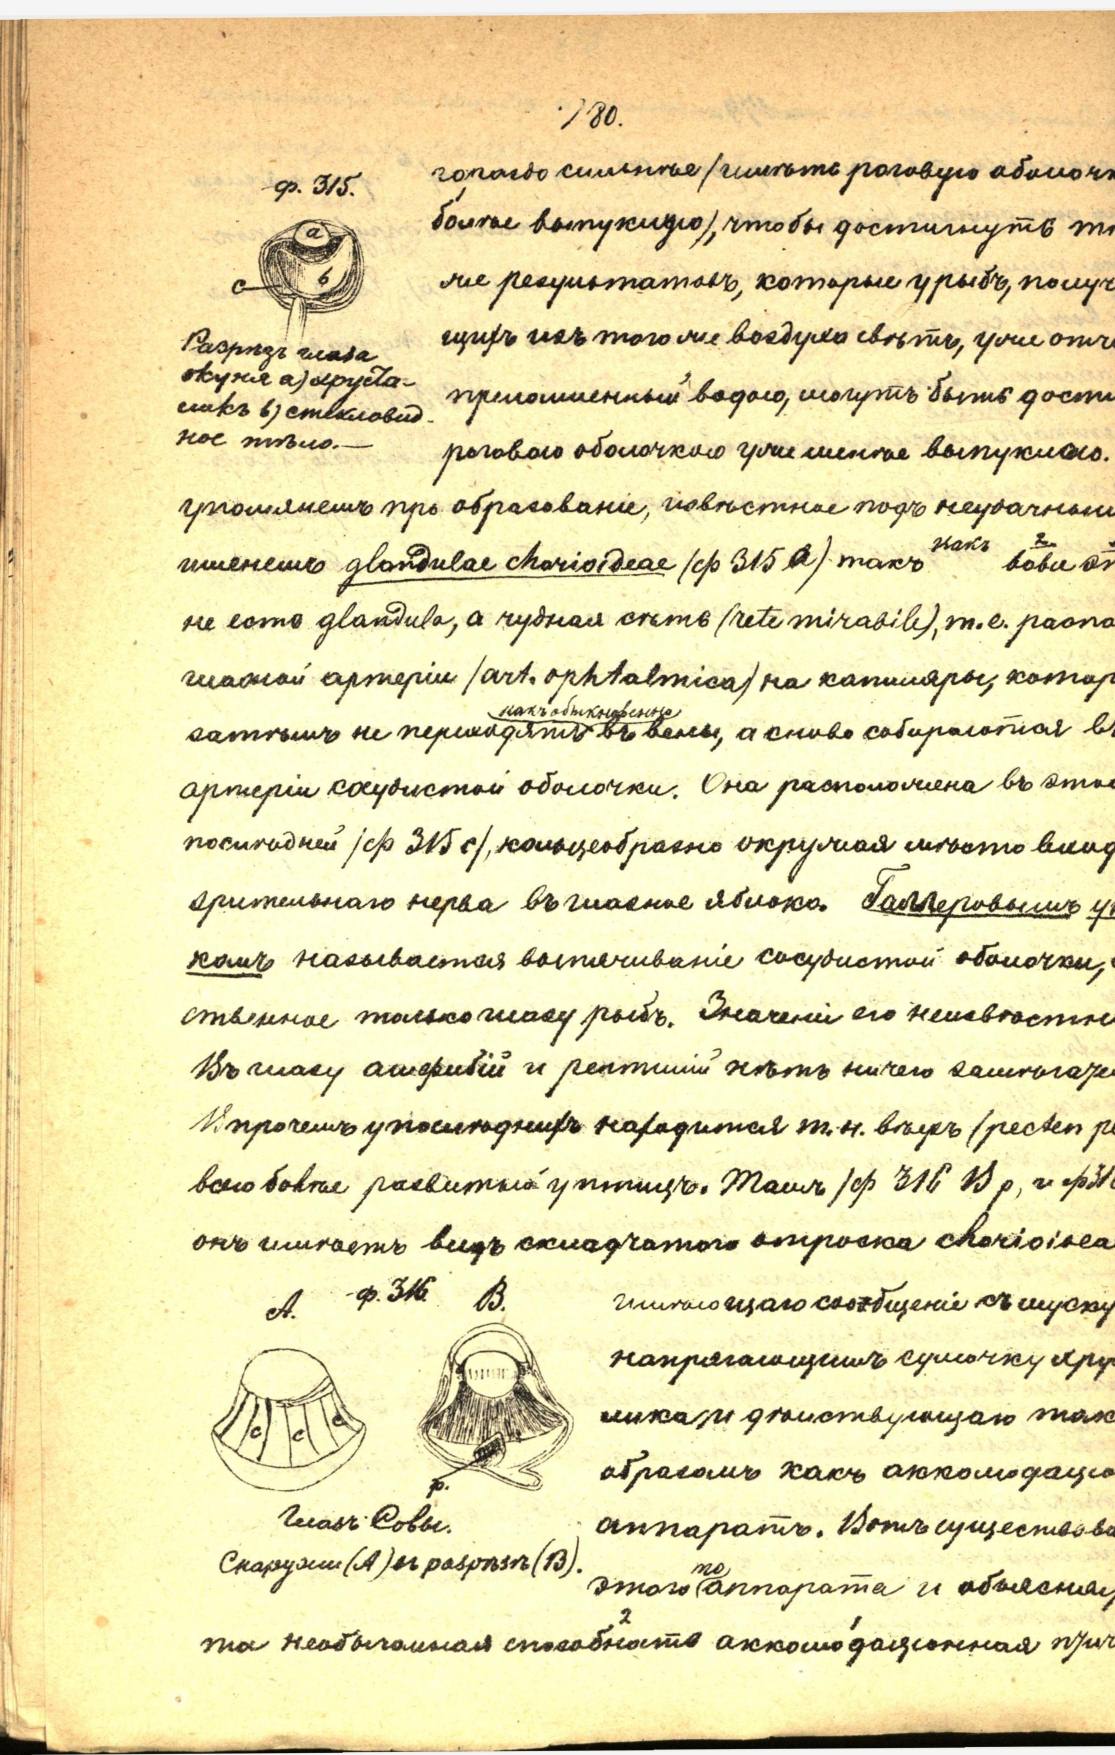 780.
ф. 315.
a
b
c
Разрѣзъ глаза
окуня a) хруста-
ликъ b) стекловид-
ное тѣло.—
гораздо сильнѣе (имѣть роговую оболочк
болѣе выпуклую), чтобы достигнуть тѣ
же результатовъ, которые у рыбъ, получ
щихъ изъ того же воздуха свѣтъ, уже отча
преломленный водою, могутъ быть дости
роговою оболочкою уже менѣе выпуклою.
упомянемъ про образованіе, извѣстное подъ неудачным
именемъ glandulae chorioideae (ф 315 c) такъ какъ 2
не есть glandula, а чудная сѣть (rete mirabile), т.е. распа
глазной артеріи (art. ophtalmica) на капиляры, котор
какъ обыкновенно
затѣмъ не переходятъ въ вены, а снова собираются въ
артеріи сосудистой оболочки. Она расположена въ этой
послѣдней (ф 315 c), кольцеобразно окружая мѣсто вход
зрительнаго нерва въ глазное яблоко. Галлеровымъ
комъ называется выпячиваніе сосудистой оболочки,
ственное только глазу рыбъ. Значеніе его неизвѣстн
Въ глазу амфибій и рептилій нѣтъ ничего замѣчате
Впрочемъ у послѣднихъ находится т.н. вѣеръ (pecten pe
всего болѣе развитый у птицъ. Тамъ (ф 316 B p, и ф 316
онъ имѣетъ видъ складчатаго отростка chorioidea
A. ф. 316 B.
c c c
p.
Глазъ Совы.
Снаружи (A) въ разрѣзѣ (B).
имѣющаго сообщеніе съ муску
напрягающимъ сумочку хру
лика, и дѣйствующаго так
образомъ какъ аккомодацио
аппаратъ. Вотъ существова
этого то аппарата и объясня
та необычайная способность 2 аккомодаціонная 1 птич